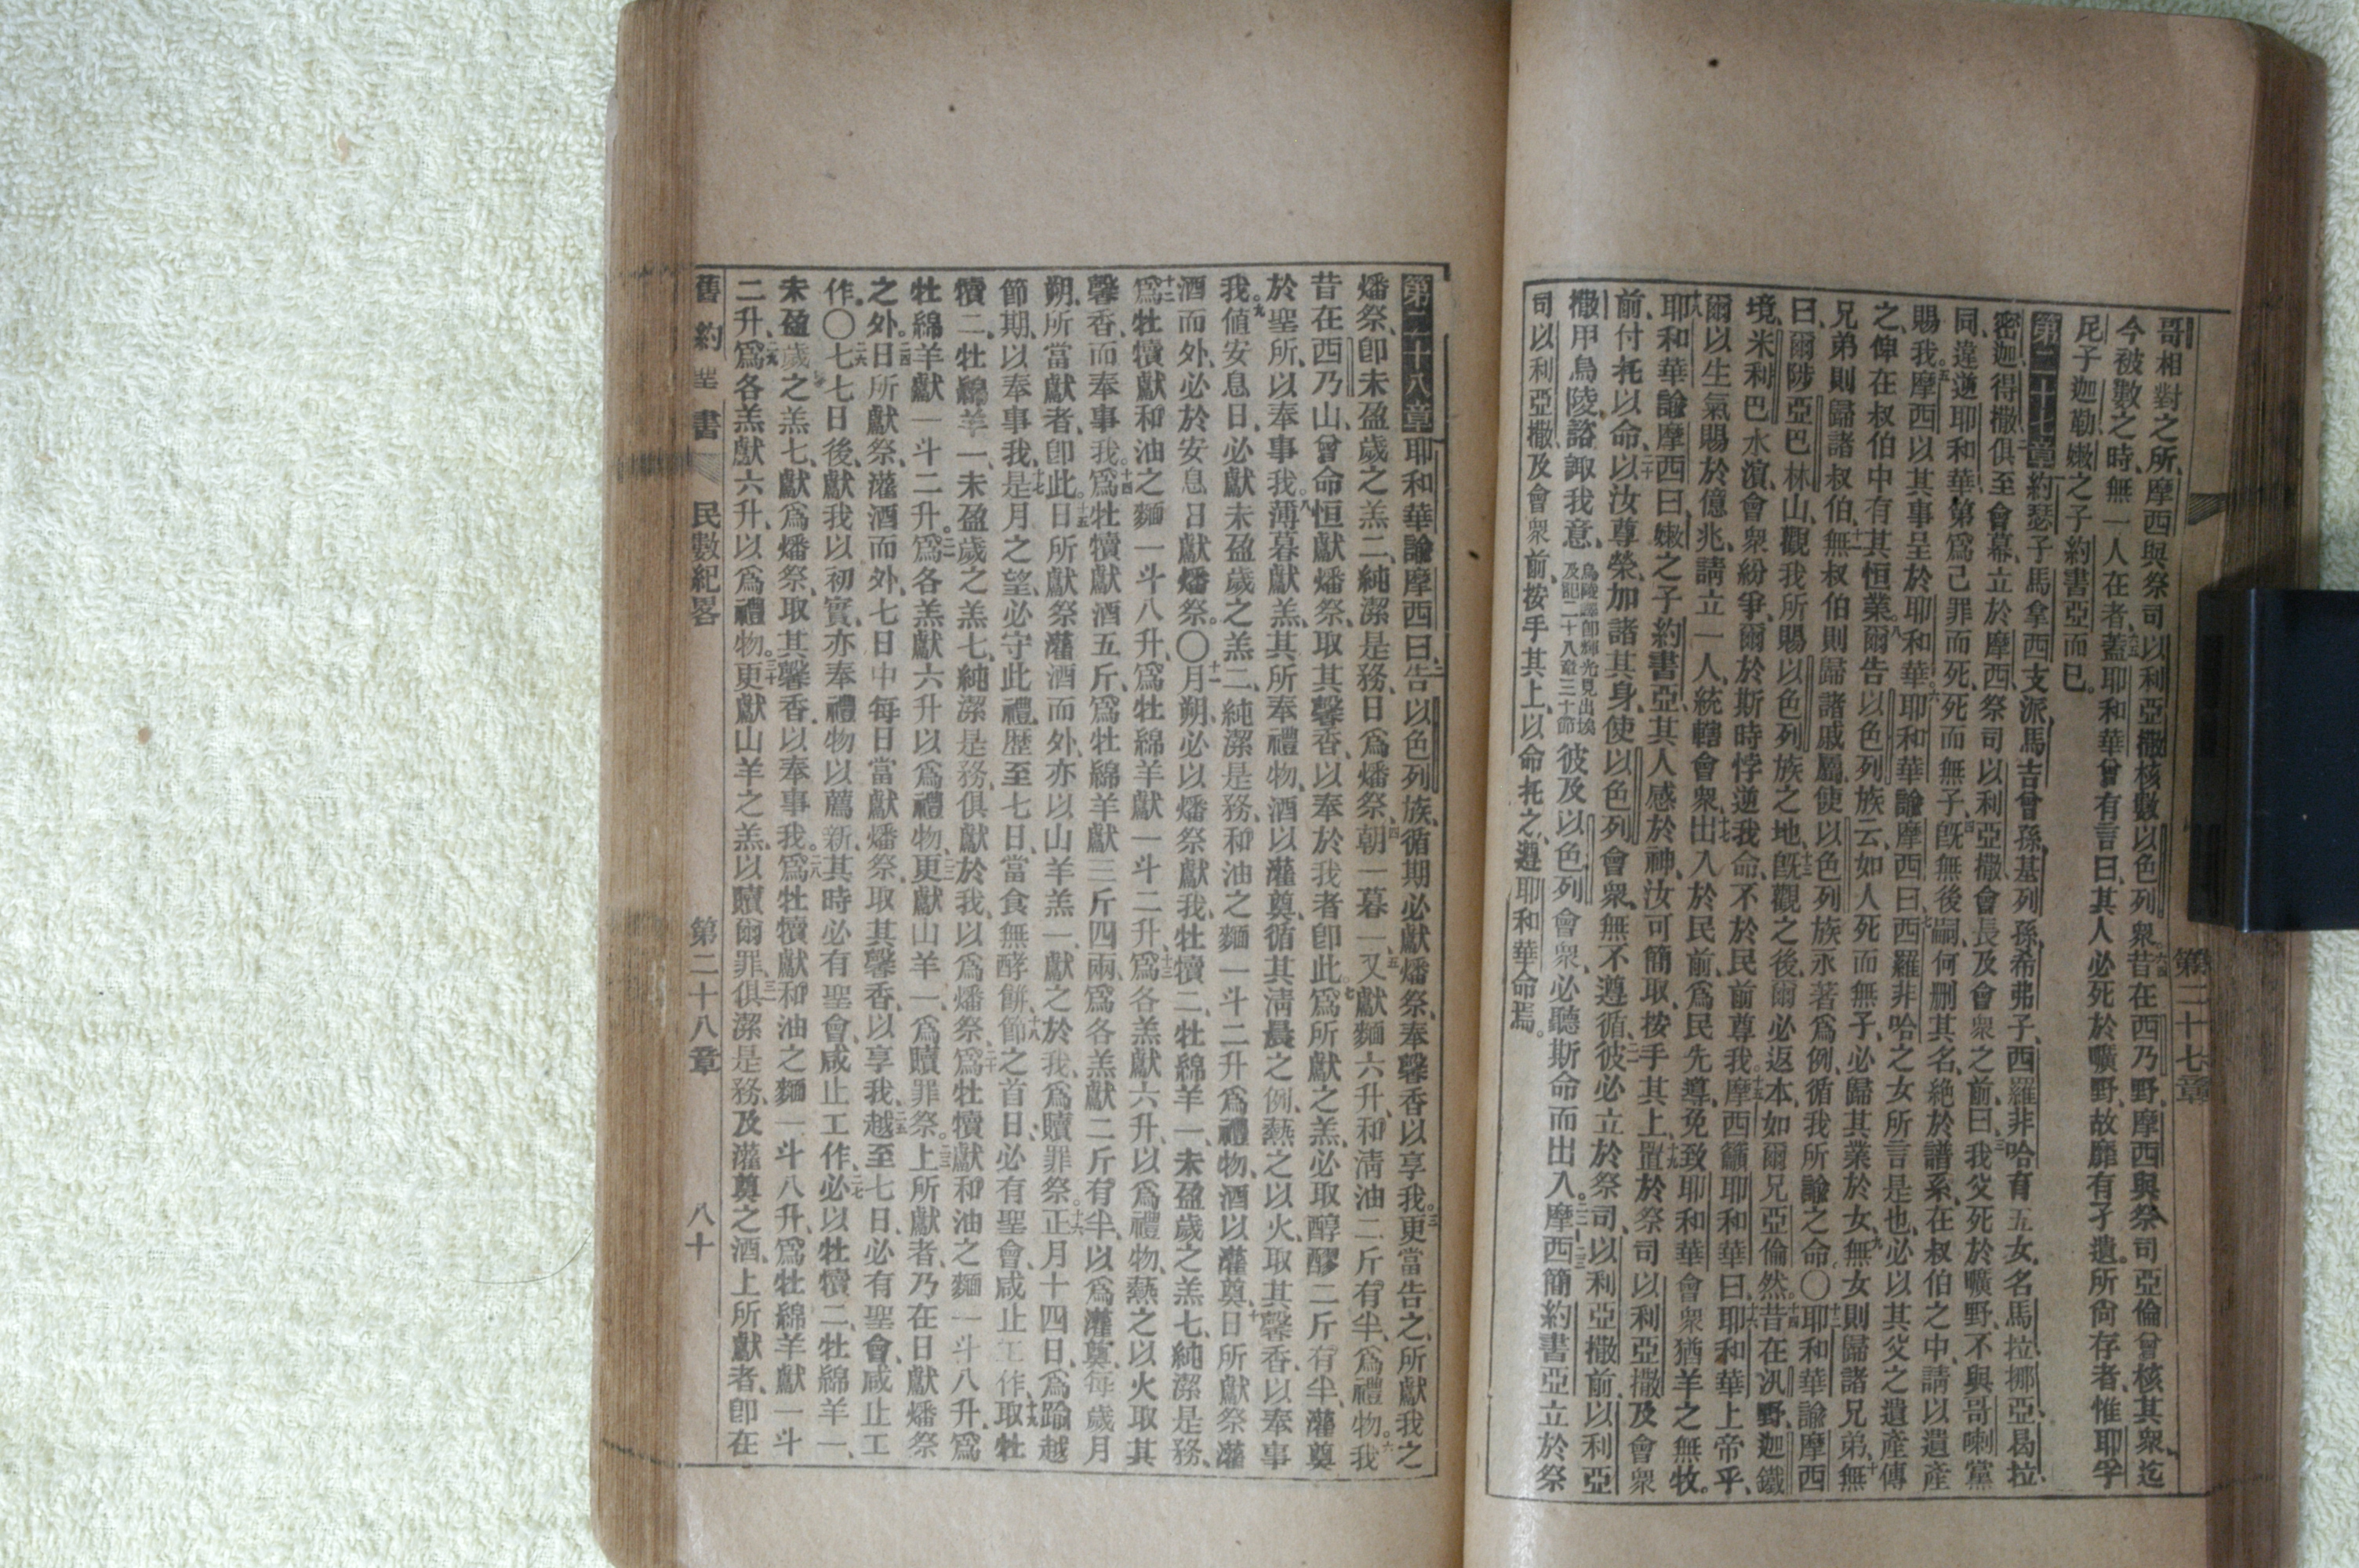 哥相對之所、摩西與祭司以利亞撒核數以色列衆。六四昔在西乃野、摩西與祭司亞倫曾核其衆、迄
今被數之時、無一人在者、六五蓋耶和華曾有言曰、其人必死於曠野、故靡有孑遺。所尙存者、惟耶孚
尼子迦勒嫩之子約書亞而已。
第二十七章
第二十七章一約瑟子馬拿西支派、馬吉曾孫、基列孫、希弗子、西羅非哈有五女、名馬拉、挪亞、曷拉、
密迦、得撒、俱至會幕、二立於摩西、祭司以利亞撒、會長及會衆之前、曰、三我父死於曠野、不與哥喇黨
同違逆耶和華、第爲己罪而死、死而無子、四旣無後嗣、何刪其名、絕於譜系、在叔伯之中、請以遺產
賜我。五摩西以其事呈於耶和華。六耶和華諭摩西曰、七西羅非哈之女所言是也、必以其父之遺產傳
之、俾在叔伯中有其恒業。八爾告以色列族云、如人死而無子、必歸其業於女、九無女則歸諸兄弟、十無
兄弟則歸諸叔伯、十一無叔伯則歸諸戚屬、使以色列族永著爲例、循我所諭之命〇十二耶和華諭摩西
曰、爾陟亞巴林山、觀我所賜以色列族之地、十三旣觀之後、爾必返本、如爾兄亞倫然、十四昔在汛野、迦鐵
境、米利巴水濱、會衆紛爭、爾於斯時悖逆我命、不於民前尊我。十五摩西籲耶和華曰、十六耶和華上帝乎、
爾以生氣賜於億兆、請立一人、統轄會衆、十七出入於民前、爲民先導、免致耶和華會衆猶羊之無牧。
十八耶和華諭摩西曰、嫩之子約書亞、其人感於神、汝可簡取、按手其上、十九置於祭司以利亞撒及會衆
前、付托以命、二十以汝尊榮、加諸其身、使以色列會衆、無不遵循、二一彼必立於祭司、以利亞撒前、以利亞
撒用烏陵、諮諏我意、烏陵譯卽輝光見出埃及記二十八章三十節彼及以色列會衆、必聽斯命而出入。二二摩西簡約書亞立於祭
司以利亞撒、及會衆前、二三按手其上、以命托之、遵耶和華命焉。
第二十八章一耶和華諭摩西曰、二告以色列族、循期必獻燔祭、奉馨香以享我。三更當告之、所獻我之
燔祭、卽未盈歲之羔二、純潔是務、日爲燔祭、四朝一暮一、五又獻麵六升、和淸油二斤有半、爲禮物。六我
昔在西乃山、曾命恒獻燔祭、取其馨香、以奉於我者卽此。七爲所獻之羔、必取醇醪二斤有半、灌奠
於聖所、以奉事我。八薄暮獻羔、其所奉禮物、酒以灌奠、循其淸晨之例、爇之以火、取其馨香、以奉事
我。九値安息日、必獻未盈歲之羔二、純潔是務、和油之麵一斗二升爲禮物、酒以灌奠、十日所獻祭灌
酒而外、必於安息日獻燔祭。〇十一月朔、必以燔祭獻我、牡犢二、牡綿羊一、未盈歲之羔七、純潔是務、
十二爲牡犢獻和油之麵一斗八升、爲牡綿羊獻一斗二升、十三爲各羔獻六升、以爲禮物、爇之以火取其
馨香、而奉事我。十四爲牡犢獻酒五斤、爲牡綿羊獻三斤四兩、爲各羔獻二斤有半、以爲灌奠、每歲月
朔、所當獻者、卽此。十五日所獻祭灌酒而外、亦以山羊羔一、獻之於我、爲贖罪祭。十六正月十四日、爲踰越
節期、以奉事我、十七是月之望、必守此禮、歷至七日、當食無酵餅、十八節之首日、必有聖會、咸止工作、十九取牡
犢二、牡綿羊一、未盈歲之羔七、純潔是務、俱獻於我、以爲燔祭、二十爲牡犢獻和油之麵一斗八升、爲
牡綿羊獻一斗二升。二一爲各羔獻六升以爲禮物、二二更獻山羊一、爲贖罪祭。二三上所獻者、乃在日獻燔祭
之外。二四日所獻祭、灌酒而外、七日中每日當獻燔祭、取其馨香、以享我、二五越至七日、必有聖會、咸止工
作。〇二六七七日後、獻我以初實、亦奉禮物以薦新、其時必有聖會、咸止工作、二七必以牡犢二、牡綿羊一、
未盈歲之羔七、獻爲燔祭、取其馨香、以奉事我。二八爲牡犢獻和油之麵一斗八升、爲牡綿羊獻一斗
二升、二九爲各羔獻六升、以爲禮物。三十更獻山羊之羔、以贖爾罪、三一俱潔是務、及灌奠之酒、上所獻者、卽在
舊約聖書 民數紀畧 第二十八章 八十